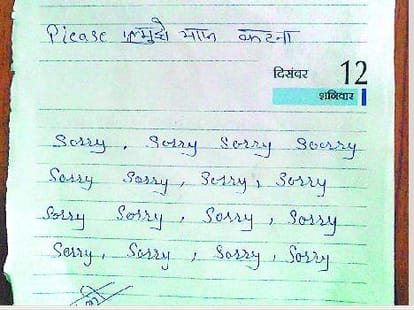 Please मुझे माफ करना
दिसंबर 12
शनिवार
Sorry, Sorry Sorry Soorry
Sorry Sorry, Sorry, Sorry
Sorry Sorry, Sorry, Sorry
Sorry, Sorry, Sorry, Sorry